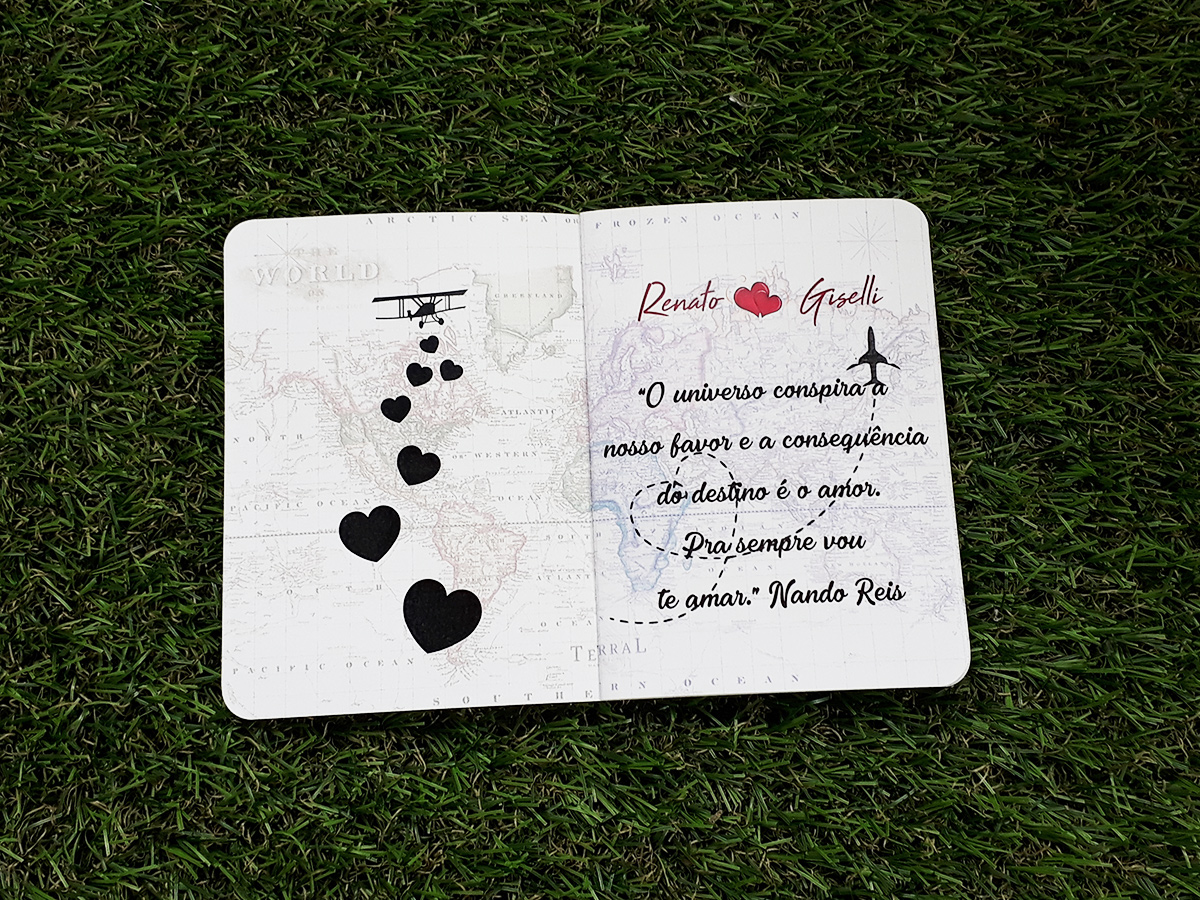 ARCTIC SEA OR FROZEN OCEAN
THE
WORLD
ON
GREENLAND
Renato Giselli
"O universo conspira a
nosso favor e a consequência
do destino é o amor.
Pra sempre vou
te amar." Nando Reis
NORTH
ATLANTIC
OR WESTERN
OCEAN
PACIFIC OCEAN
SOUTH
SOUTH
ATLANTIC
OCEAN
PACIFIC OCEAN
TERRAL
SOUTHERN OCEAN